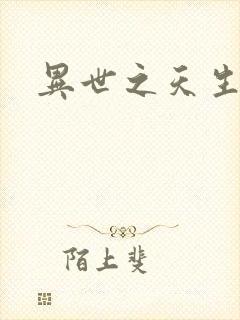 異世之天生
陌上斐